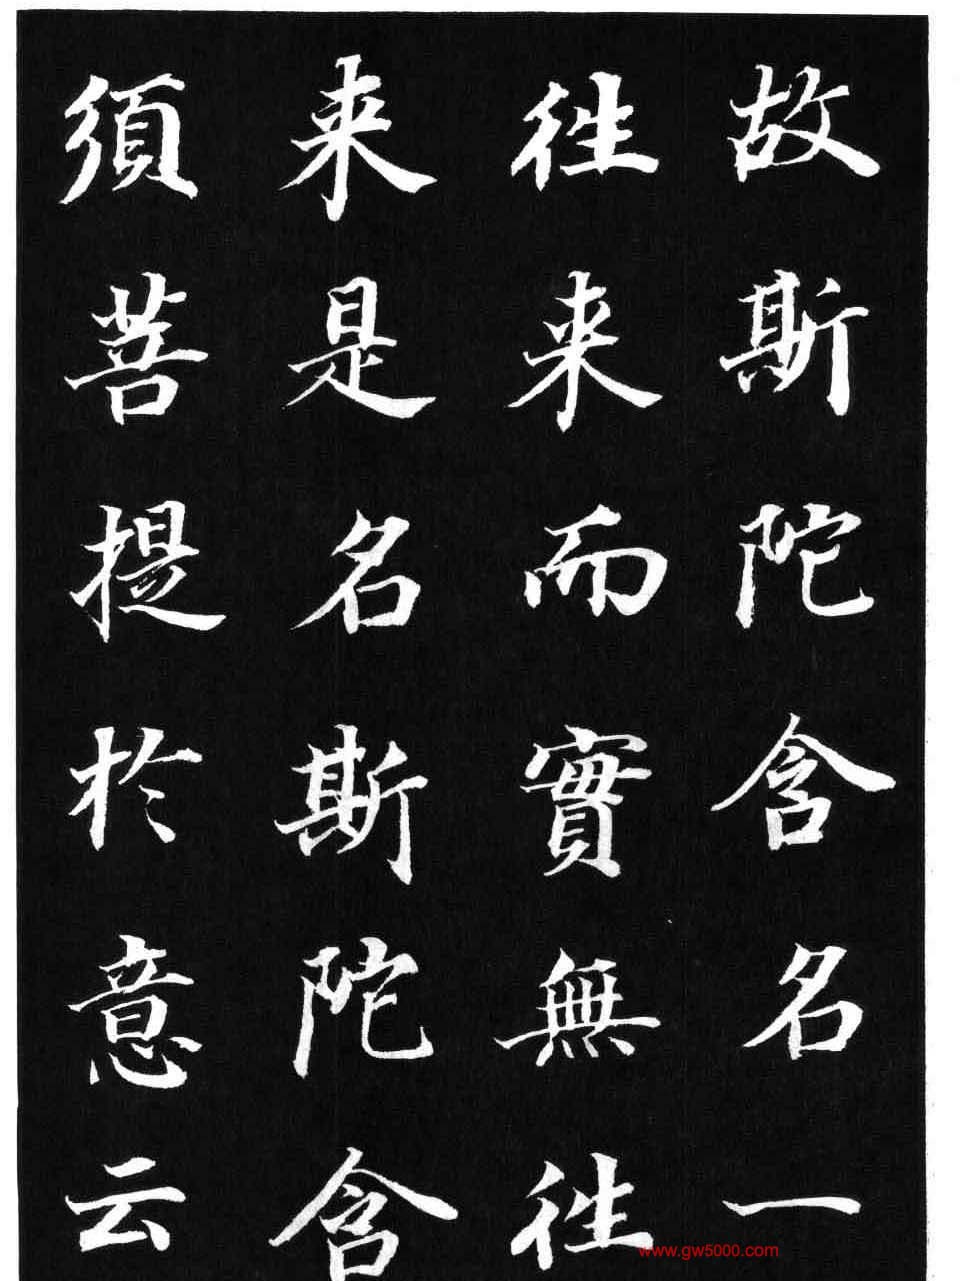 故斯陀含名一
徃来而實無徃
来是名斯陀含
須菩提於意云
www.gw5000.com